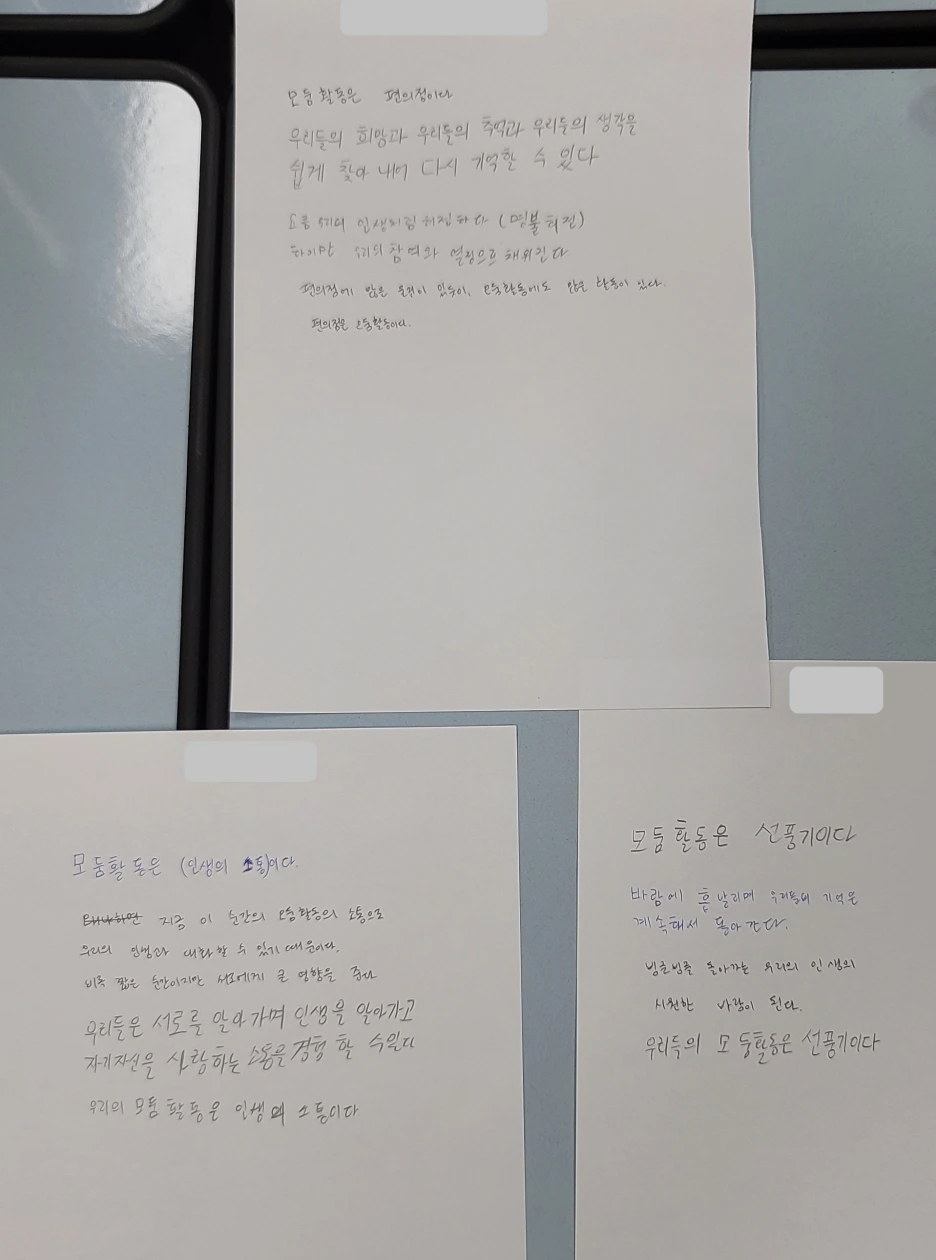 모둠활동은 편의점이다
우리들의 희망과 우리들의 추억과 우리들의 생각을
쉽게 찾아 내어 다시 기억할 수 있다
인생처럼 허점하다 (명불허전)
하지만 우리의 참여와 열정으로 채워진다
편의점에 많은 물건이 있듯이, 모둠활동에도 많은 활동이 있다.
편의점은 모둠활동이다.
모둠활동은 (인생의 소통)이다.
왜냐하면 지금 이 순간의 모둠활동의 소통으로
우리의 인생과 대화할 수 있기 때문이다.
비록 짧은 순간이지만 서로에게 큰 영향을 준다
우리들은 서로를 알아가며 인생을 알아가고
자기자신을 사랑하는 소통을 경험 할 수있다
우리의 모둠활동은 인생의 소통이다
모둠활동은 선풍기이다
바람에 흩날리며 우리들의 기억은
계속해서 돌아간다.
빙글빙글 돌아가는 우리의 인생의
시원한 바람이 된다.
우리들의 모둠활동은 선풍기이다